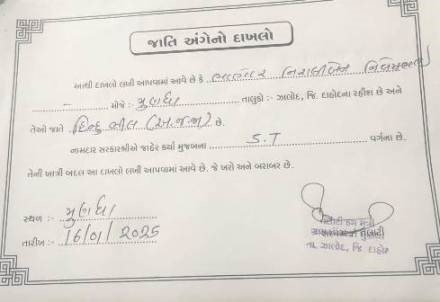 જાતિ અંગેનો દાખલો
આથી દાખલો લખી આપવામાં આવે છે કે નિરાલીબેન
મોજે :- મુણધા તાલુકો :- ઝાલોદ, જિ. દાહોદના રહીશ છે અને
તેઓ જાતે હિન્દુ ભીલ (અ.જ.જા) છે.
નામદાર સરકારશ્રીએ જાહેર કર્યા મુજબના S.T વર્ગના છે.
તેની ખાત્રી બદલ આ દાખલો લખી આપવામાં આવે છે. જે ખરો અને બરાબર છે.
સ્થળ :- મુણધા
તારીખ :- 16/01/2025
તલાટી કમ મંત્રી
તા. ઝાલોદ, જિ. દાહોદ